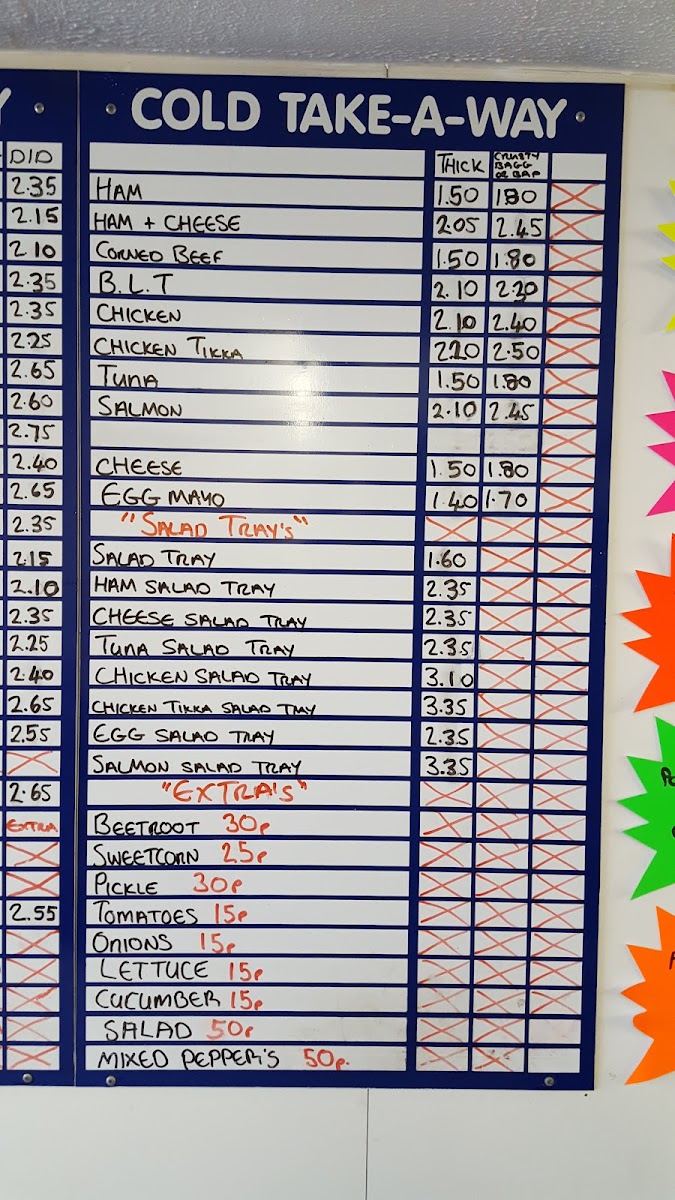 Y
COLD TAKE-A-WAY
DID THICK CRUSTY BAGG OR BAP
2.35 HAM 1.50 1.80
2.15 HAM + CHEESE 2.05 2.45
2.10 CORNED BEEF 1.50 1.80
2.35 B.L.T 2.10 2.20
2.35 CHICKEN 2.10 2.40
2.25 CHICKEN TIKKA 2.20 2.50
2.65 TUNA 1.50 1.80
2.60 SALMON 2.10 2.45
2.75
2.40 CHEESE 1.50 1.80
2.65 EGG MAYO 1.40 1.70
2.35 "SALAD TRAY'S"
2.15 SALAD TRAY 1.60
2.10 HAM SALAD TRAY 2.35
2.35 CHEESE SALAD TRAY 2.35
2.25 TUNA SALAD TRAY 2.35
2.40 CHICKEN SALAD TRAY 3.10
2.65 CHICKEN TIKKA SALAD TRAY 3.35
2.55 EGG SALAD TRAY 2.35
SALMON SALAD TRAY 3.35
2.65 "EXTRA'S"
EXTRA BEETROOT 30p
SWEETCORN 25p
PICKLE 30p
2.55 TOMATOES 15p
ONIONS 15p
LETTUCE 15p
CUCUMBER 15p
SALAD 50p
MIXED PEPPER'S 50p.